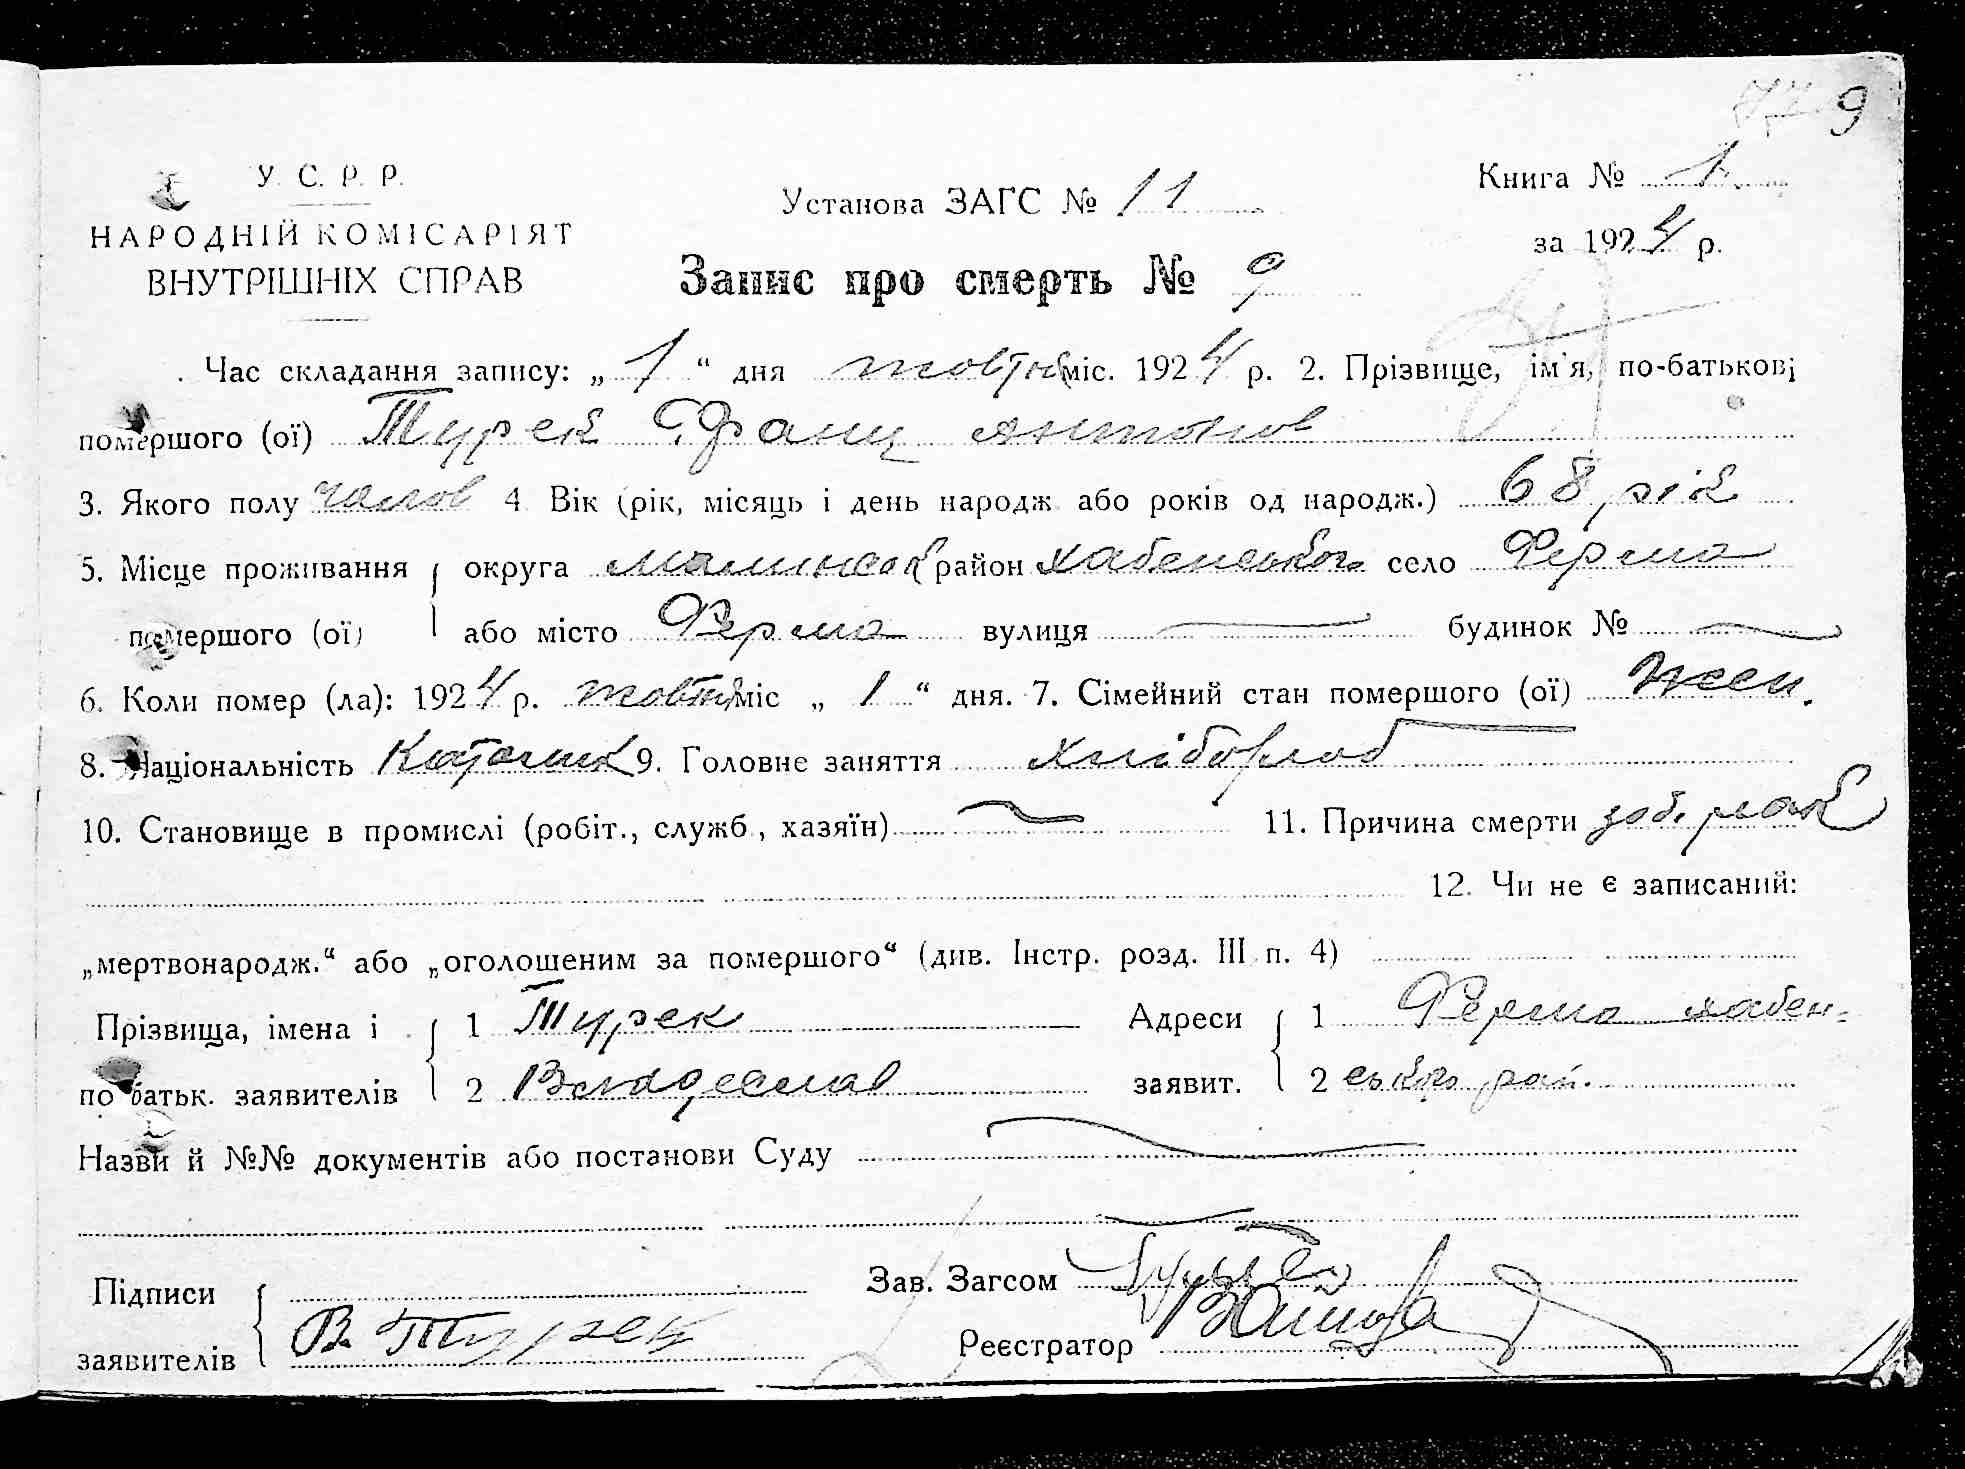 9
У. С. Р. Р.
НАРОДНІЙ КОМІСАРІЯТ
ВНУТРІШНІХ СПРАВ
Установа ЗАГС № 11
Книга № 1
за 1924 р.
Запис про смерть № 9
Час складання запису: „ 1 “ дня жовтня міс. 1924 р. 2. Прізвище, ім'я, по-батькові
помершого (ої) Турек Франц Антонов
3. Якого полу чолов 4 Вік (рік, місяць і день народж або років од народж.) 68 рік
5. Місце проживання округа Малинськ район Хабенського село Ферма
помершого (ої) або місто Ферма вулиця будинок №
6. Коли помер (ла): 1924 р. жовтня міс „ 1 “ дня. 7. Сімейний стан помершого (ої) жен.
8. Національність Католик 9. Головне заняття хлібороб
10. Становище в промислі (робіт., служб., хазяїн) 11. Причина смерти
12. Чи не є записаний:
„мертвонародж.“ або „оголошеним за помершого“ (див. Інстр. розд. III п. 4)
Прізвища, імена і 1 Турек Адреси 1 Ферма хабен-
по батьк. заявителів 2 Владеслав заявит. 2 ського рай.
Назви й №№ документів або постанови Суду
Підписи Зав. Загсом
заявителів В. Турек Реєстратор